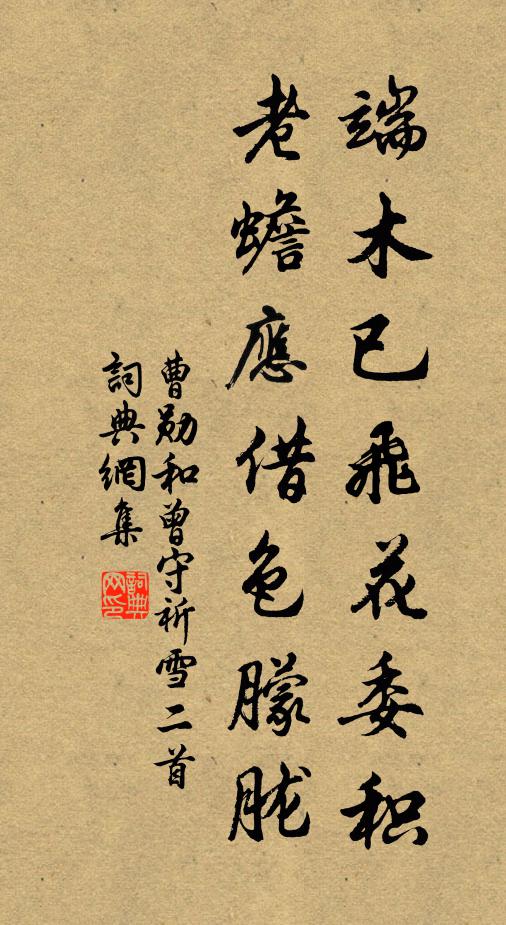 端木已飛花委积
老蟾應借色朦胧
曹勋和曾守祈雪二首
詞典網集
詞典网印